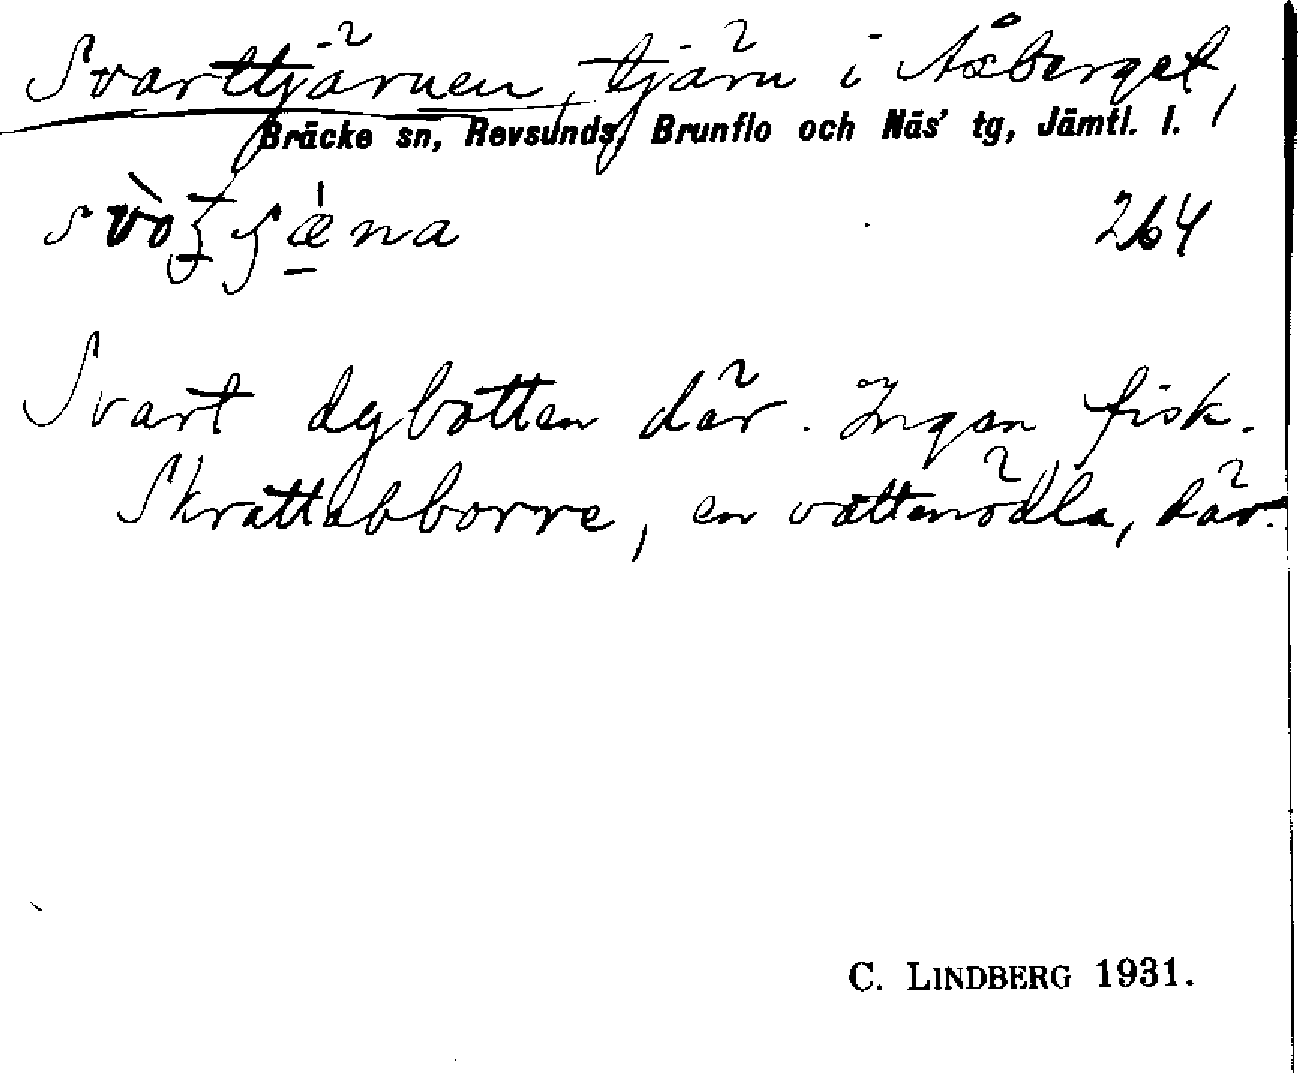 Svarttjärnen, tjärn i Åsberget,
Bräcke sn, Revsunds, Brunflo och Näs' tg, Jämtl. l.
264
Svart dybotten där. Ingen fisk.
Skrattabborre, en vattenödla, där.
C. LINDBERG 1931.